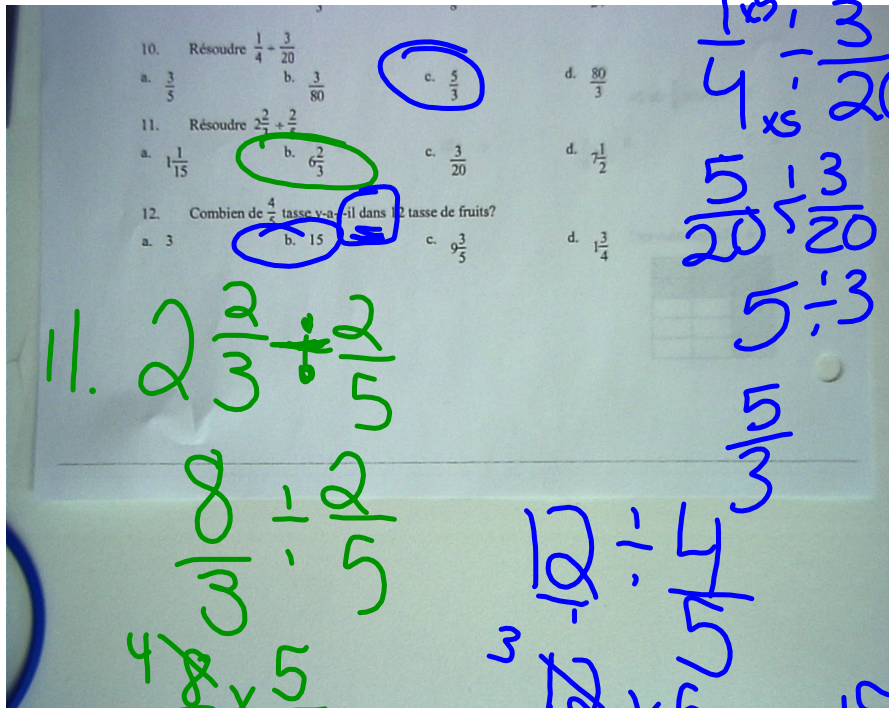 10. Résoudre 1/4 ÷ 3/20
a. 3/5 b. 3/80 c. 5/3 d. 80/3
11. Résoudre 2 2/3 ÷
a. 1 1/15 b. 6 2/3 c. 3/20 d. 7 1/2
12. Combien de 4/5 tasse y-a-t-il dans 12 tasse de fruits?
a. 3 b. 15 c. 9 3/5 d. 1 3/4
1 x5 ÷ 3
4 x5 20
5/20 ÷ 3/20
5 ÷ 3
5/3
11. 2 2/3 ÷ 2/5
8/3 ÷ 2/5
4 8 x 5
12/1 ÷ 4/5
3